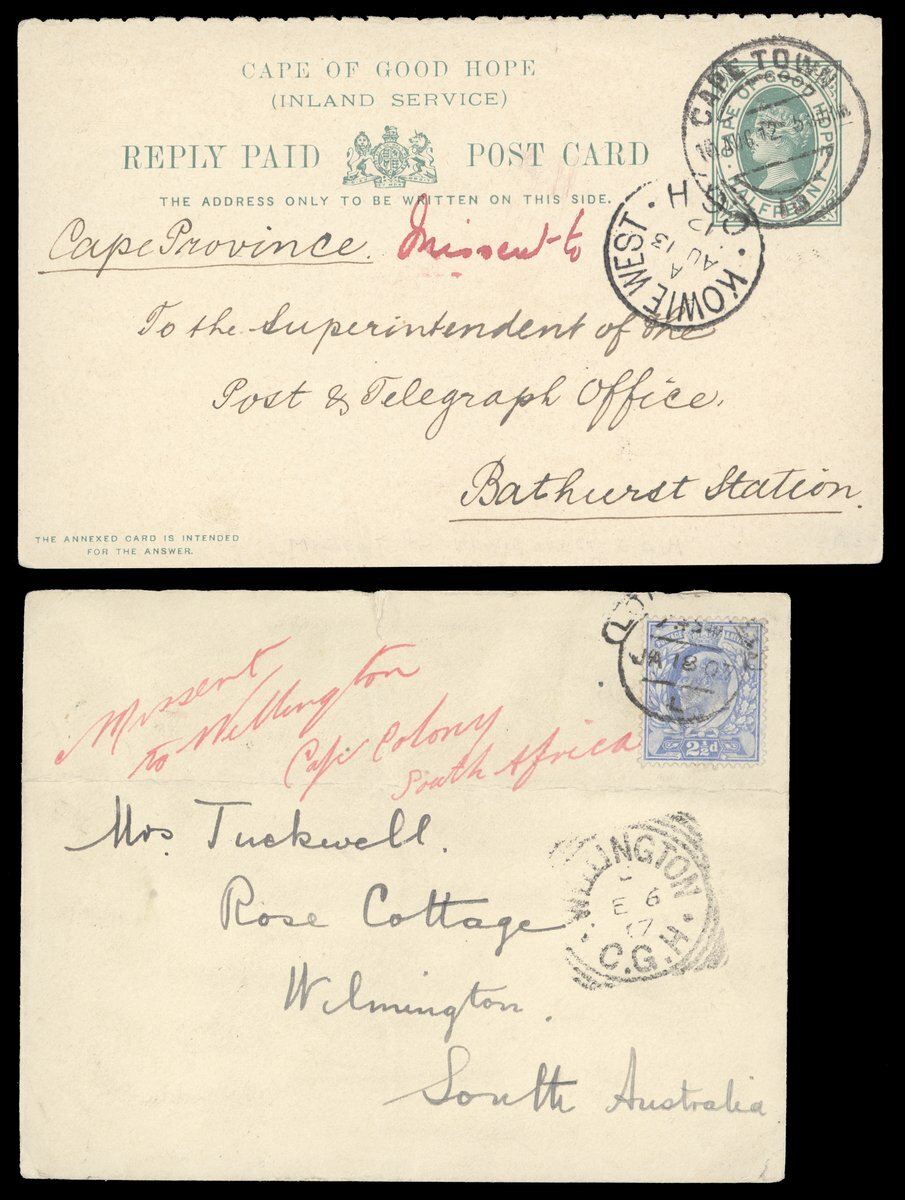 CAPE OF GOOD HOPE
(INLAND SERVICE)
REPLY PAID POST CARD
THE ADDRESS ONLY TO BE WRITTEN ON THIS SIDE.
CAPE TOWN
CAPE OF GOOD HOPE
HALFPENNY
KOWIE WEST · C.G.H ·
A
AU 13
12
Cape Province. Missent to
To the Superintendent of the
Post & Telegraph Office.
Bathurst Station.
THE ANNEXED CARD IS INTENDED
FOR THE ANSWER.
JA 18 07
2½d
Missent
to Wellington
Cape Colony
South Africa
Mrs. Tuckwell.
Rose Cottage
Wilmington.
South Australia
· WELLINGTON ·
E 6
7
C.G.H.